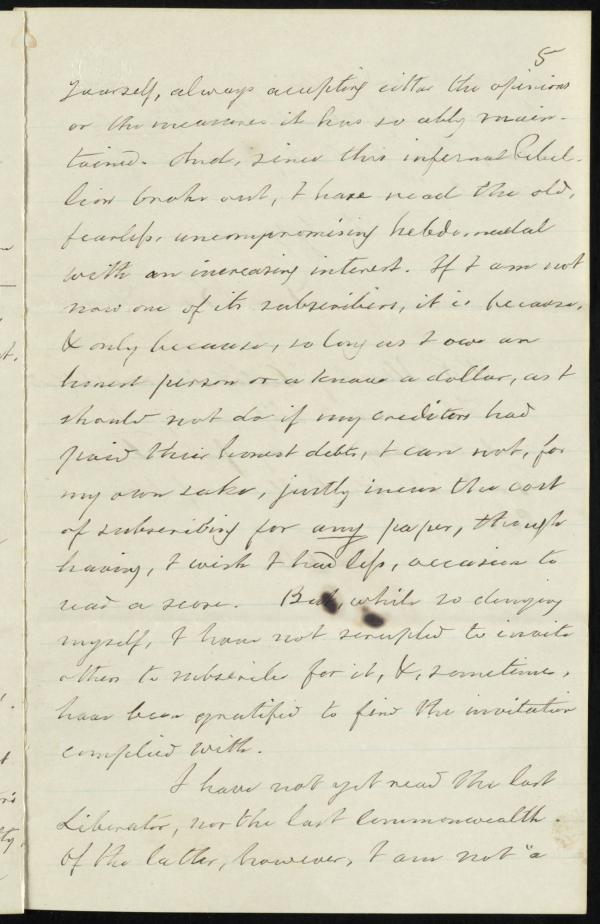 5
yourself, always accepting either the opinions
or the measures it has so ably main-
tained. And, since this infernal Rebel-
lion broke out, I have read the old,
fearless, uncompromising hebdomadal
with an increasing interest. If I am not
now one of its subscribers, it is because,
& only because, so long as I owe an
honest person or a knave a dollar, as I
should not do if my creditors had
paid their honest debts, I can not, for
my own sake, justly incur the cost
of subscribing for any paper, though
having, I wish I had less, occasion to
read a score. But, while so denying
myself, I have not scrupled to invite
others to subscribe for it, &, sometimes,
have been gratified to find the invitation
complied with.
I have not yet read the last
Liberator, nor the last Commonwealth.
Of the latter, however, I am not "a